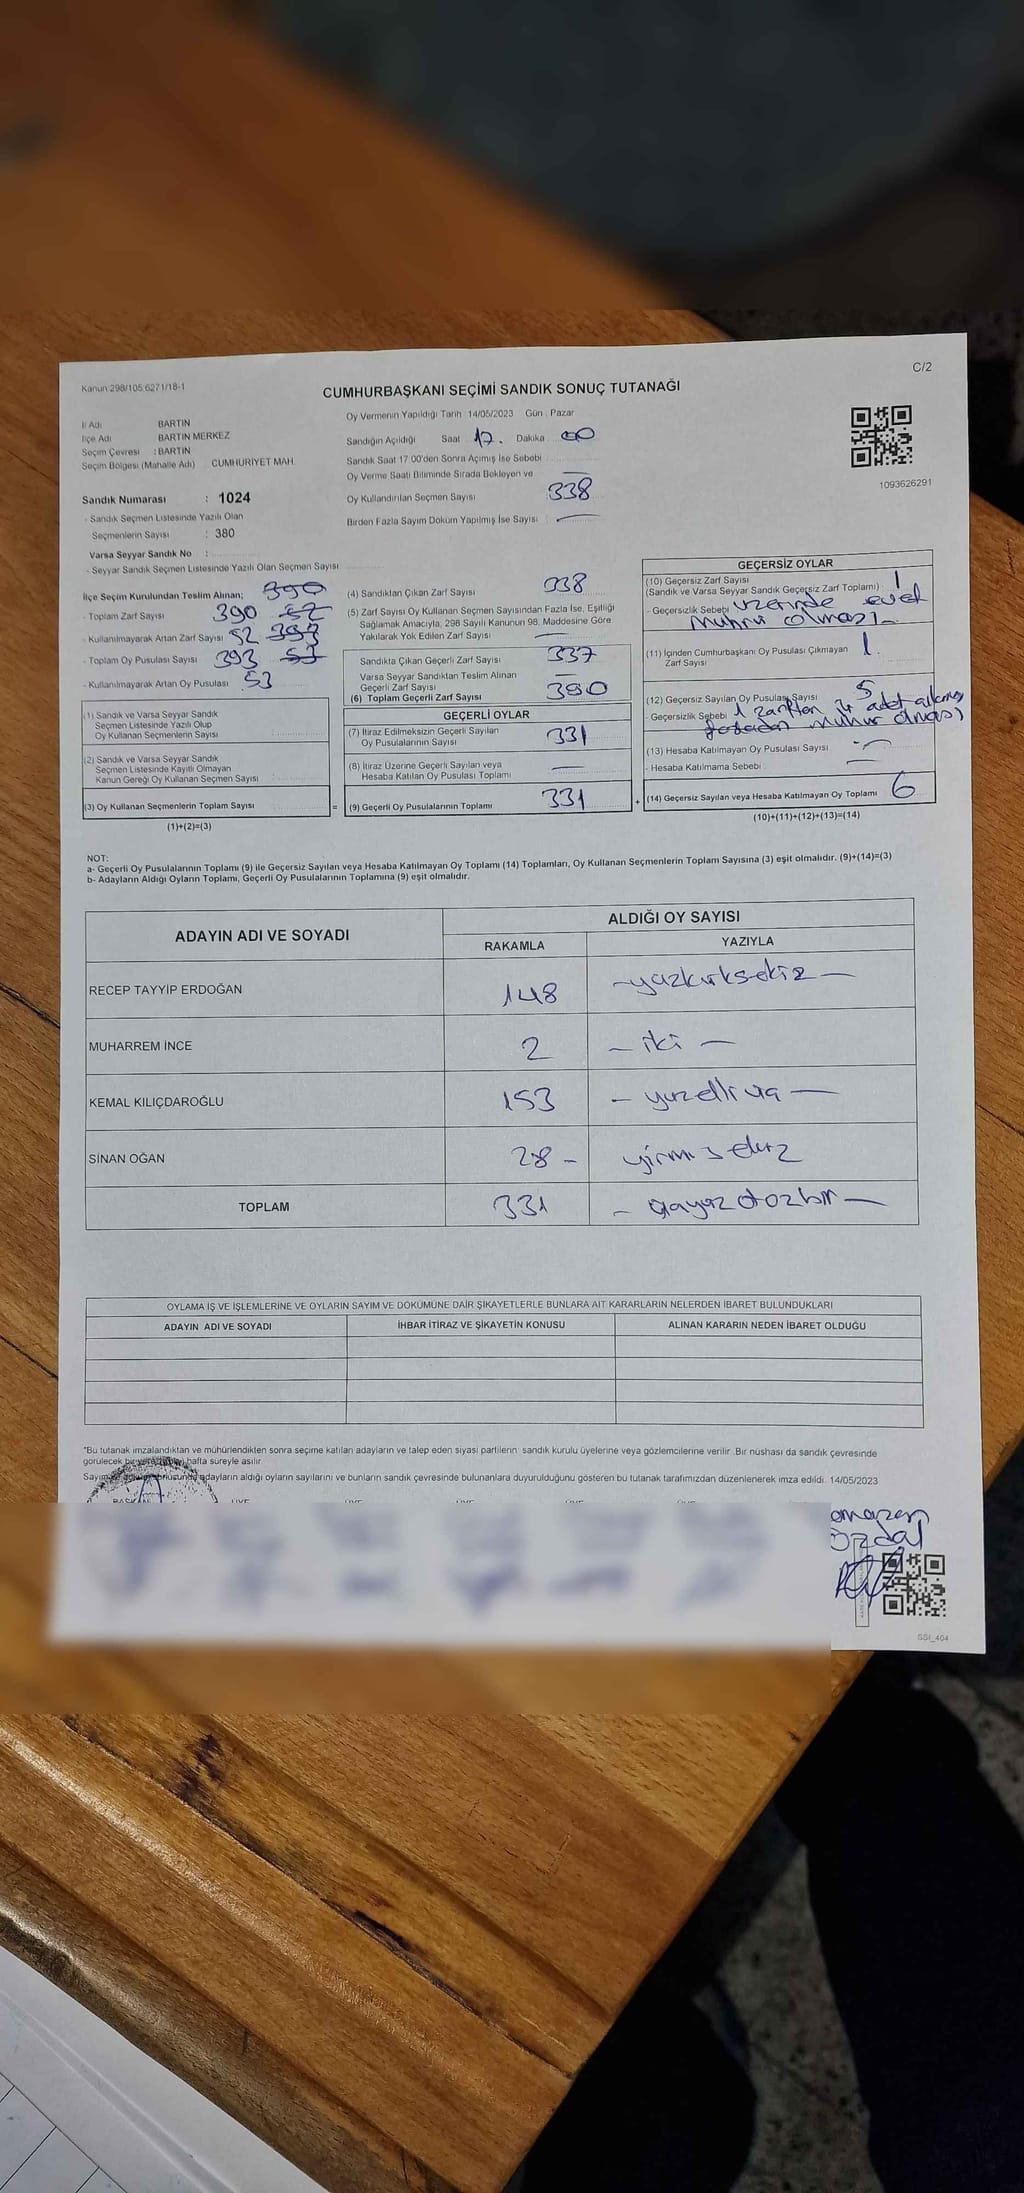 Kanun 298/105 6271/18-1
C/2
CUMHURBAŞKANI SEÇİMİ SANDIK SONUÇ TUTANAĞI
İl Adı BARTIN
İlçe Adı BARTIN MERKEZ
Seçim Çevresi : BARTIN
Seçim Bölgesi (Mahalle Adı) CUMHURİYET MAH.
Sandık Numarası : 1024
- Sandık Seçmen Listesinde Yazılı Olan
Seçmenlerin Sayısı : 380
Varsa Seyyar Sandık No :
- Seyyar Sandık Seçmen Listesinde Yazılı Olan Seçmen Sayısı
Oy Vermenin Yapıldığı Tarih 14/05/2023 Gün : Pazar
Sandığın Açıldığı Saat 17. Dakika 00
Sandık Saat 17.00'den Sonra Açılmış İse Sebebi
Oy Verme Saati Bitiminde Sırada Bekleyen ve —
Oy Kullandırılan Seçmen Sayısı 338
Birden Fazla Sayım Döküm Yapılmış İse Sayısı : —
1093626291
İlçe Seçim Kurulundan Teslim Alınan; 390
- Toplam Zarf Sayısı 390 52
- Kullanılmayarak Artan Zarf Sayısı 52 393
- Toplam Oy Pusulası Sayısı 393 53
- Kullanılmayarak Artan Oy Pusulası 53
(1) Sandık ve Varsa Seyyar Sandık
Seçmen Listesinde Yazılı Olup
Oy Kullanan Seçmenlerin Sayısı
(2) Sandık ve Varsa Seyyar Sandık
Seçmen Listesinde Kayıtlı Olmayan
Kanun Gereği Oy Kullanan Seçmen Sayısı
(3) Oy Kullanan Seçmenlerin Toplam Sayısı
(1)+(2)=(3)
=
(4) Sandıktan Çıkan Zarf Sayısı 338
(5) Zarf Sayısı Oy Kullanan Seçmen Sayısından Fazla İse, Eşitliği
Sağlamak Amacıyla, 298 Sayılı Kanunun 98. Maddesine Göre
Yakılarak Yok Edilen Zarf Sayısı —
Sandıkta Çıkan Geçerli Zarf Sayısı 337
Varsa Seyyar Sandıktan Teslim Alınan —
Geçerli Zarf Sayısı
(6) Toplam Geçerli Zarf Sayısı 380
GEÇERLİ OYLAR
(7) İtiraz Edilmeksizin Geçerli Sayılan
Oy Pusulalarının Sayısı 331
(8) İtiraz Üzerine Geçerli Sayılan veya
Hesaba Katılan Oy Pusulası Toplamı —
(9) Geçerli Oy Pusulalarının Toplamı 331
+
GEÇERSİZ OYLAR
(10) Geçersiz Zarf Sayısı 1
(Sandık ve Varsa Seyyar Sandık Geçersiz Zarf Toplamı)
- Geçersizlik Sebebi üzerinde evet
mührü olması
(11) İçinden Cumhurbaşkanı Oy Pusulası Çıkmayan 1
Zarf Sayısı
(12) Geçersiz Sayılan Oy Pusulası Sayısı 5
- Geçersizlik Sebebi 1 zarftan adet
fazladan mühür olması
(13) Hesaba Katılmayan Oy Pusulası Sayısı —
- Hesaba Katılmama Sebebi —
(14) Geçersiz Sayılan veya Hesaba Katılmayan Oy Toplamı 6
(10)+(11)+(12)+(13)=(14)
NOT:
a- Geçerli Oy Pusulalarının Toplamı (9) ile Geçersiz Sayılan veya Hesaba Katılmayan Oy Toplamı (14) Toplamları, Oy Kullanan Seçmenlerin Toplam Sayısına (3) eşit olmalıdır. (9)+(14)=(3)
b- Adayların Aldığı Oyların Toplamı, Geçerli Oy Pusulalarının Toplamına (9) eşit olmalıdır.
ADAYIN ADI VE SOYADI
ALDIĞI OY SAYISI
RAKAMLA YAZIYLA
RECEP TAYYİP ERDOĞAN 148 — yüzkırksekiz —
MUHARREM İNCE 2 — iki —
KEMAL KILIÇDAROĞLU 153 — yüzelliüç —
SİNAN OĞAN 28 — yirmisekiz
TOPLAM 331 — üçyüzotuzbir —
OYLAMA İŞ VE İŞLEMLERİNE VE OYLARIN SAYIM VE DÖKÜMÜNE DAİR ŞİKAYETLERLE BUNLARA AİT KARARLARIN NELERDEN İBARET BULUNDUKLARI
ADAYIN ADI VE SOYADI İHBAR İTİRAZ VE ŞİKAYETİN KONUSU ALINAN KARARIN NEDEN İBARET OLDUĞU
*Bu tutanak imzalandıktan ve mühürlendikten sonra seçime katılan adayların ve talep eden siyasi partilerin sandık kurulu üyelerine veya gözlemcilerine verilir. Bir nüshası da sandık çevresinde
görülecek bir yere hafta süreyle asılır.
Sayım adayların aldığı oyların sayılarını ve bunların sandık çevresinde bulunanlara duyurulduğunu gösteren bu tutanak tarafımızdan düzenlenerek imza edildi. 14/05/2023
BAŞKAN ÜYE ÜYE ÜYE ÜYE ÜYE
özdal
SSI_404